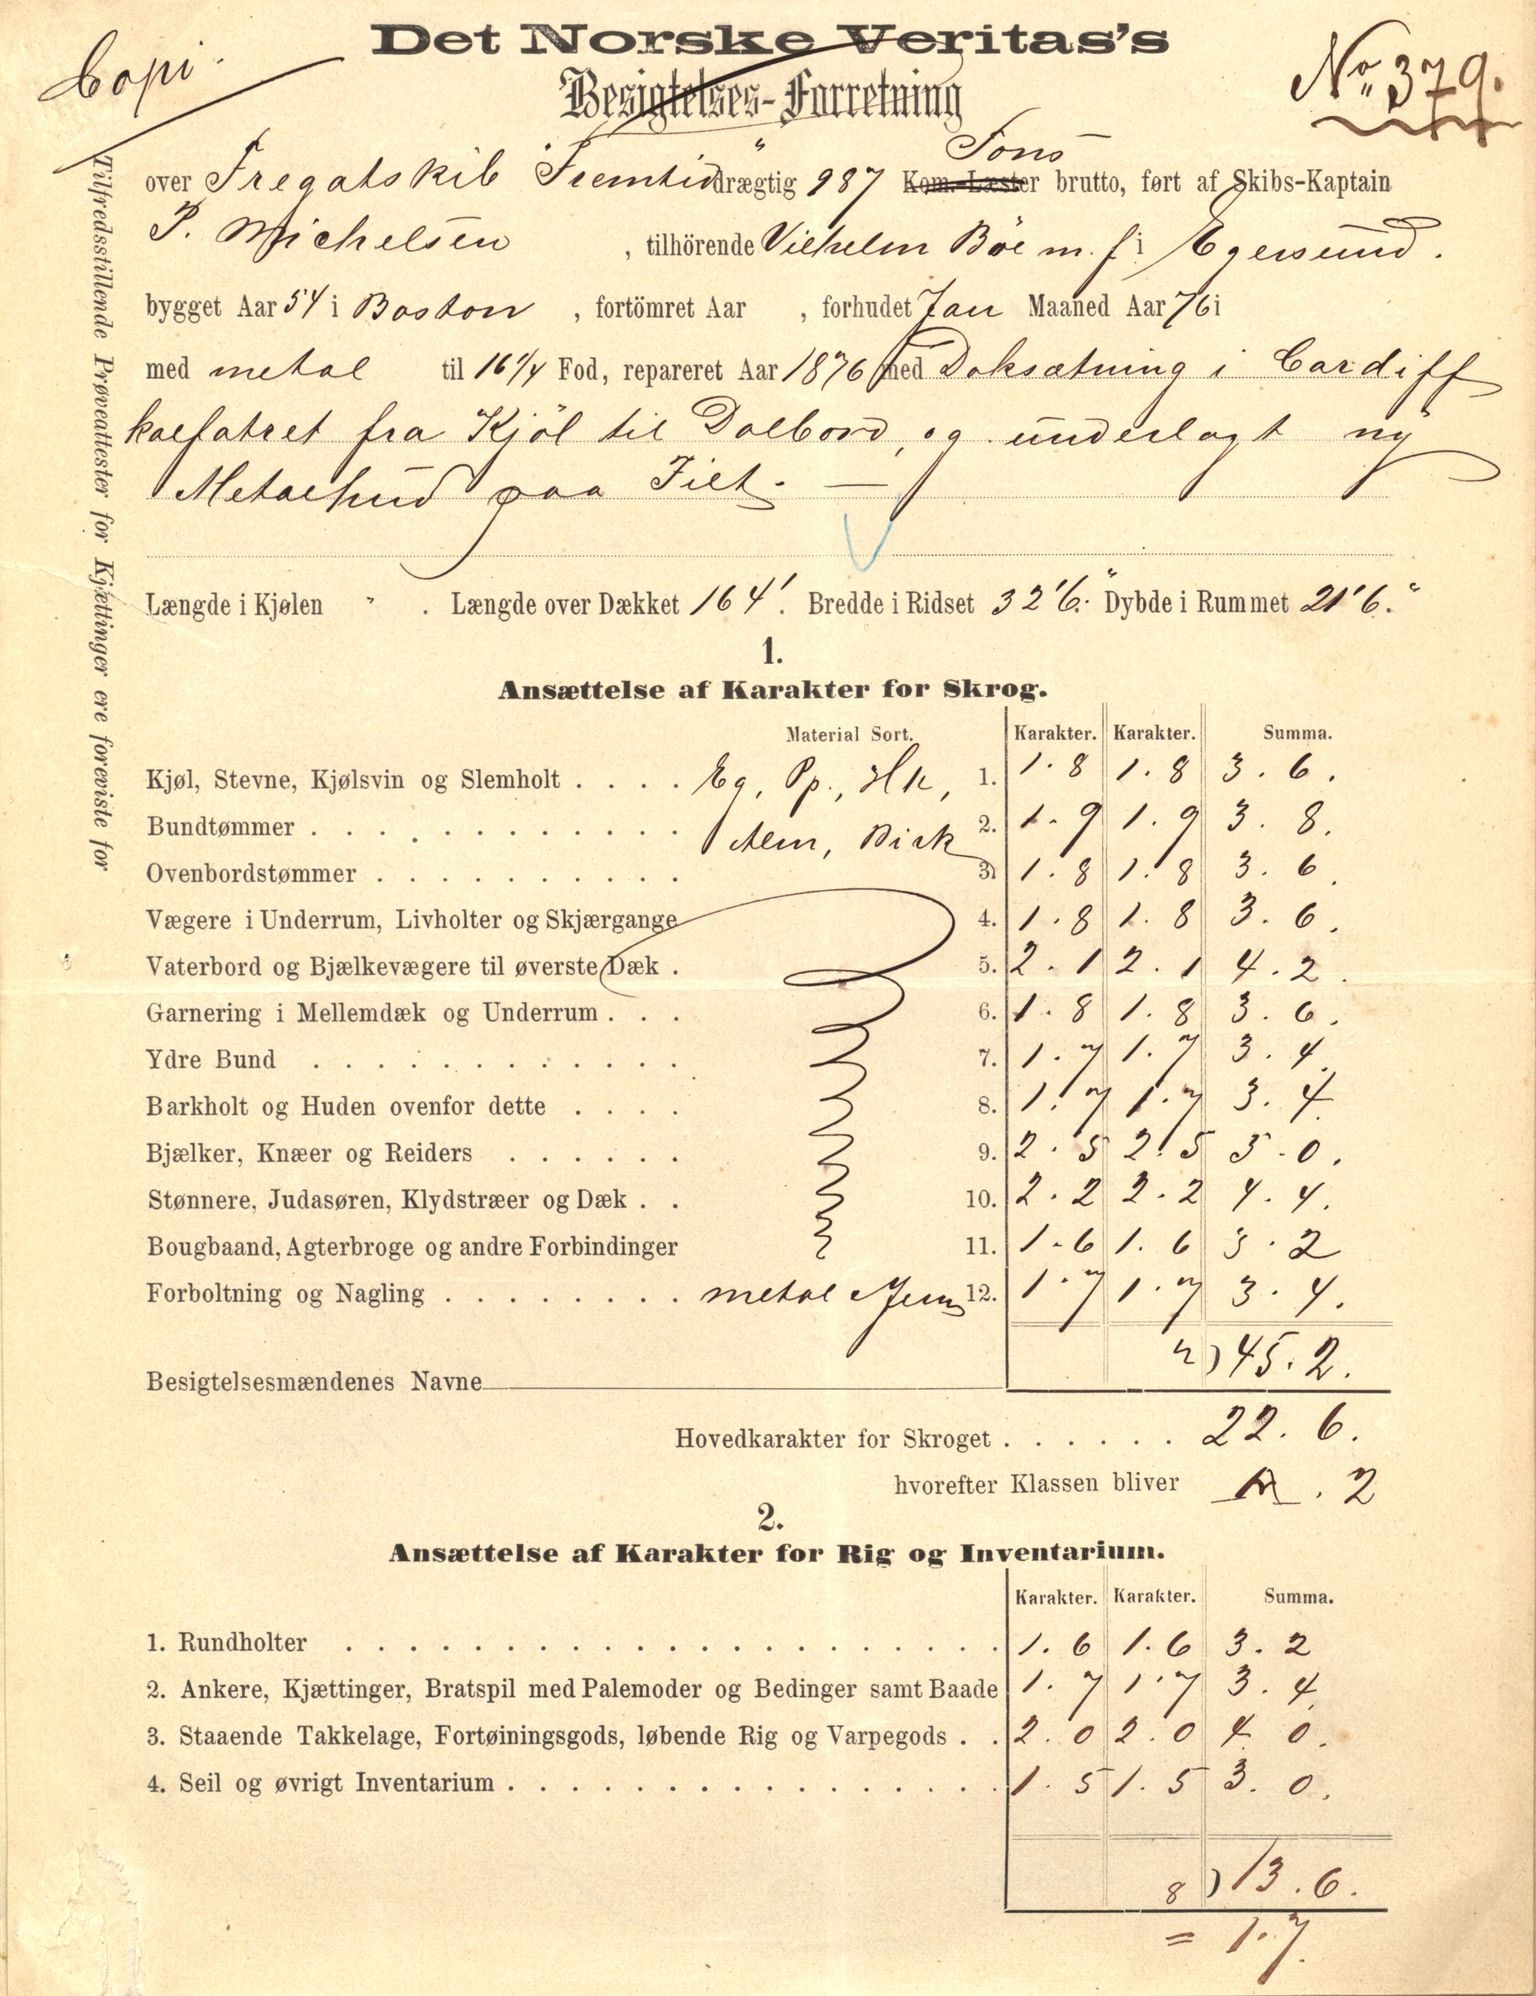 Copi.
Det Norske Veritas's
Besigtelses-Forretning
No 379.
Tons
over Fregatskib "Fremtid" drægtig 987 Kom.-Læster brutto, ført af Skibs-Kaptain
P. Michelsen, tilhörende Vilhelm Böe m. f. i Egersund.
bygget Aar 54 i Boston, fortömret Aar , forhudet Jan Maaned Aar 76 i
med metal til 16 1/4 Fod, repareret Aar 1876 med Doksætning i Cardiff
kalfatret fra Kjöl til Dolbord, og underlagt ny
Metalhud paa Filt. —
Længde i Kjølen " . Længde over Dækket 164'. Bredde i Ridset 32'6." Dybde i Rummet 21'6."
Tilfredsstillende Prøveattester for Kjættinger ere foreviste for
1.
Ansættelse af Karakter for Skrog.
Material Sort. Karakter. Karakter. Summa.
Kjøl, Stevne, Kjølsvin og Slemholt . . . . Eg, Pp., Hk, 1. 1.8 1.8 3.6.
Bundtømmer . . . . . . . . . . . . Alm, Birk 2. 1.9 1.9 3.8.
Ovenbordstømmer . . . . . . . . . . 3. 1.8 1.8 3.6.
Vægere i Underrum, Livholter og Skjærgange 4. 1.8 1.8 3.6.
Vaterbord og Bjælkevægere til øverste Dæk . 5. 2.1 2.1 4.2.
Garnering i Mellemdæk og Underrum . . . 6. 1.8 1.8 3.6.
Ydre Bund . . . . . . . . . . . . 7. 1.7 1.7 3.4.
Barkholt og Huden ovenfor dette . . . . 8. 1.7 1.7 3.4.
Bjælker, Knæer og Reiders . . . . . . 9. 2.5 2.5 5.0.
Stønnere, Judasøren, Klydstræer og Dæk . . 10. 2.2 2.2 4.4.
Bougbaand, Agterbroge og andre Forbindinger 11. 1.6 1.6 3.2
Forboltning og Nagling . . . . . . . . metal Jern 12. 1.7 1.7 3.4.
2) 45.2.
Besigtelsesmændenes Navne
Hovedkarakter for Skroget . . . . . . 22.6.
hvorefter Klassen bliver A.2
2.
Ansættelse af Karakter for Rig og Inventarium.
Karakter. Karakter. Summa.
1. Rundholter . . . . . . . . . . . . . . . . . . . . 1.6 1.6 3.2
2. Ankere, Kjættinger, Bratspil med Palemoder og Bedinger samt Baade 1.7 1.7 3.4.
3. Staaende Takkelage, Fortøiningsgods, løbende Rig og Varpegods . . 2.0 2.0 4.0.
4. Seil og øvrigt Inventarium . . . . . . . . . . . . . . . 1.5 1.5 3.0.
8) 13.6.
= 1.7.